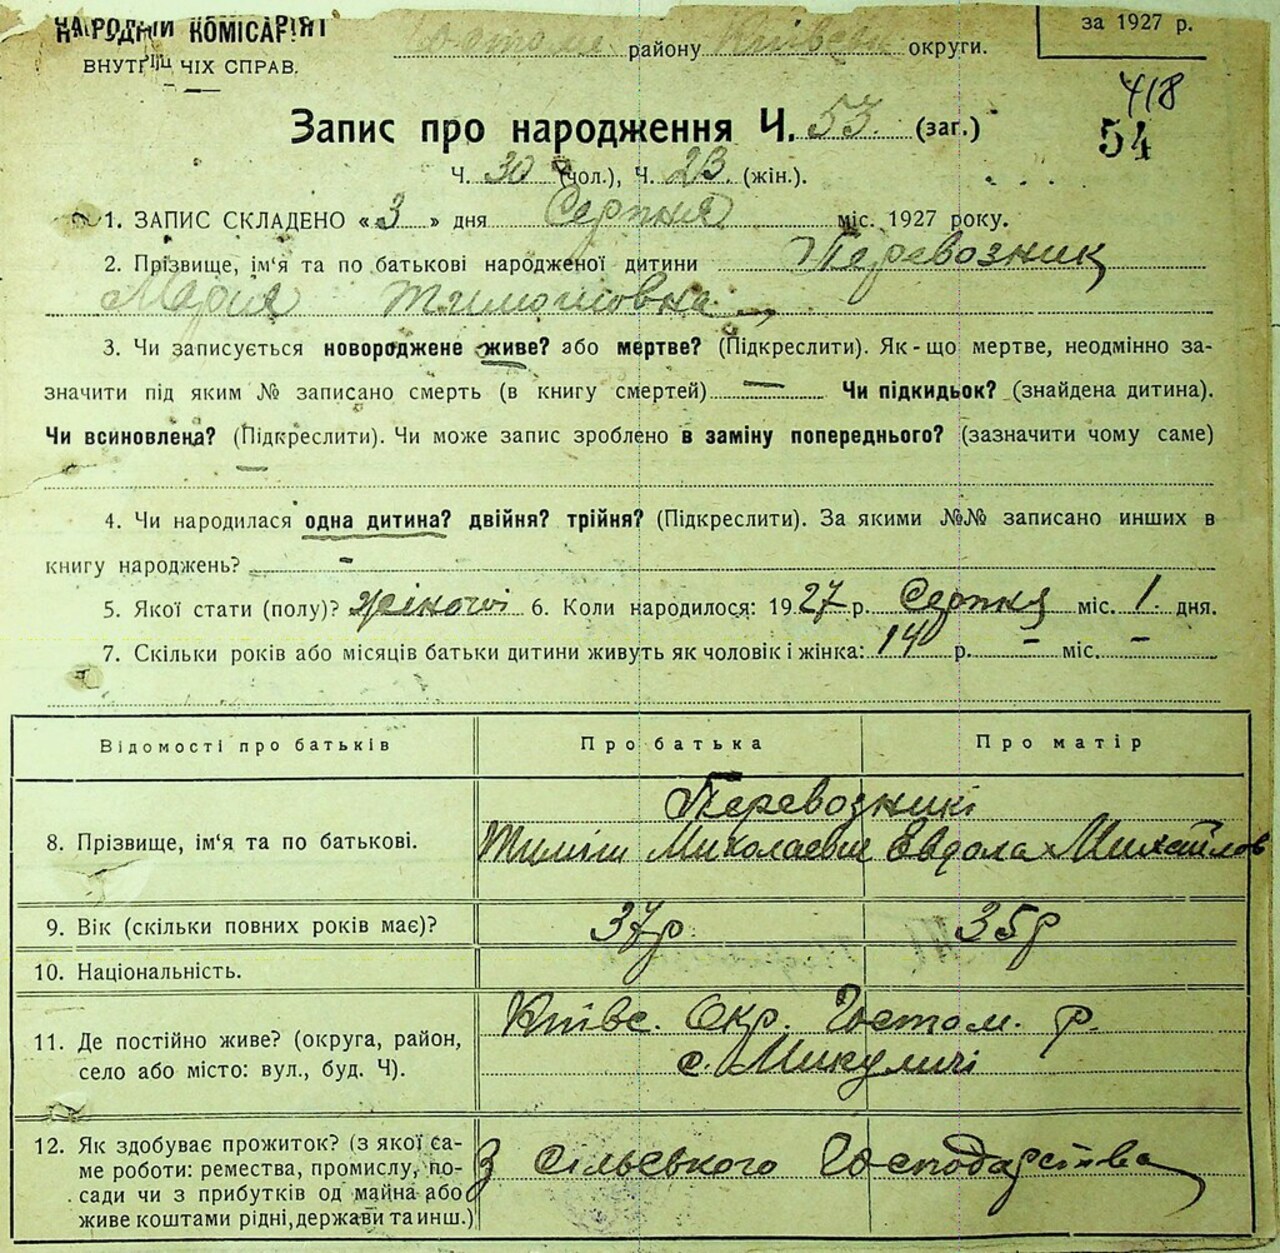 НАРОДНІЙ КОМІСАРІЯТ
ВНУТРІШНІХ СПРАВ.
Гостом району Київськ округи.
за 1927 р.
418
54
Запис про народження Ч. 53. (заг.)
Ч. 30 (чол.), Ч. 23. (жін.).
1. ЗАПИС СКЛАДЕНО «3» дня Серпня міс. 1927 року.
2. Прізвище, ім‘я та по батькові народженої дитини Перевозник
Марія Тимошовна
3. Чи записується новороджене живе? або мертве? (Підкреслити). Як-що мертве, неодмінно за-
значити під яким № записано смерть (в книгу смертей) — Чи підкидьок? (знайдена дитина).
Чи всиновлена? (Підкреслити). Чи може запис зроблено в заміну попереднього? (зазначити чому саме)
—
4. Чи народилася одна дитина? двійня? трійня? (Підкреслити). За якими №№ записано инших в
книгу народжень? -
5. Якої стати (полу)? жіночої 6. Коли народилося: 1927 р. Серпня міс. 1. дня.
7. Скільки років або місяців батьки дитини живуть як чоловік і жінка: 14 р. - міс. -
Відомості про батьків Про батька Про матір
Перевозникі
8. Прізвище, ім‘я та по батькові. Тиміш Миколаевич Евдоха Михайлов
9. Вік (скільки повних років має)? 37р. 35р
10. Національність.
Київс. Окр. Гостом. р.
11. Де постійно живе? (округа, район,
село або місто: вул., буд. Ч). с. Микуличі
12. Як здобуває прожиток? (з якої са-
ме роботи: ремества, промислу, по- З сільського Господарства
сади чи з прибутків од майна або
живе коштами рідні, держави та инш.)